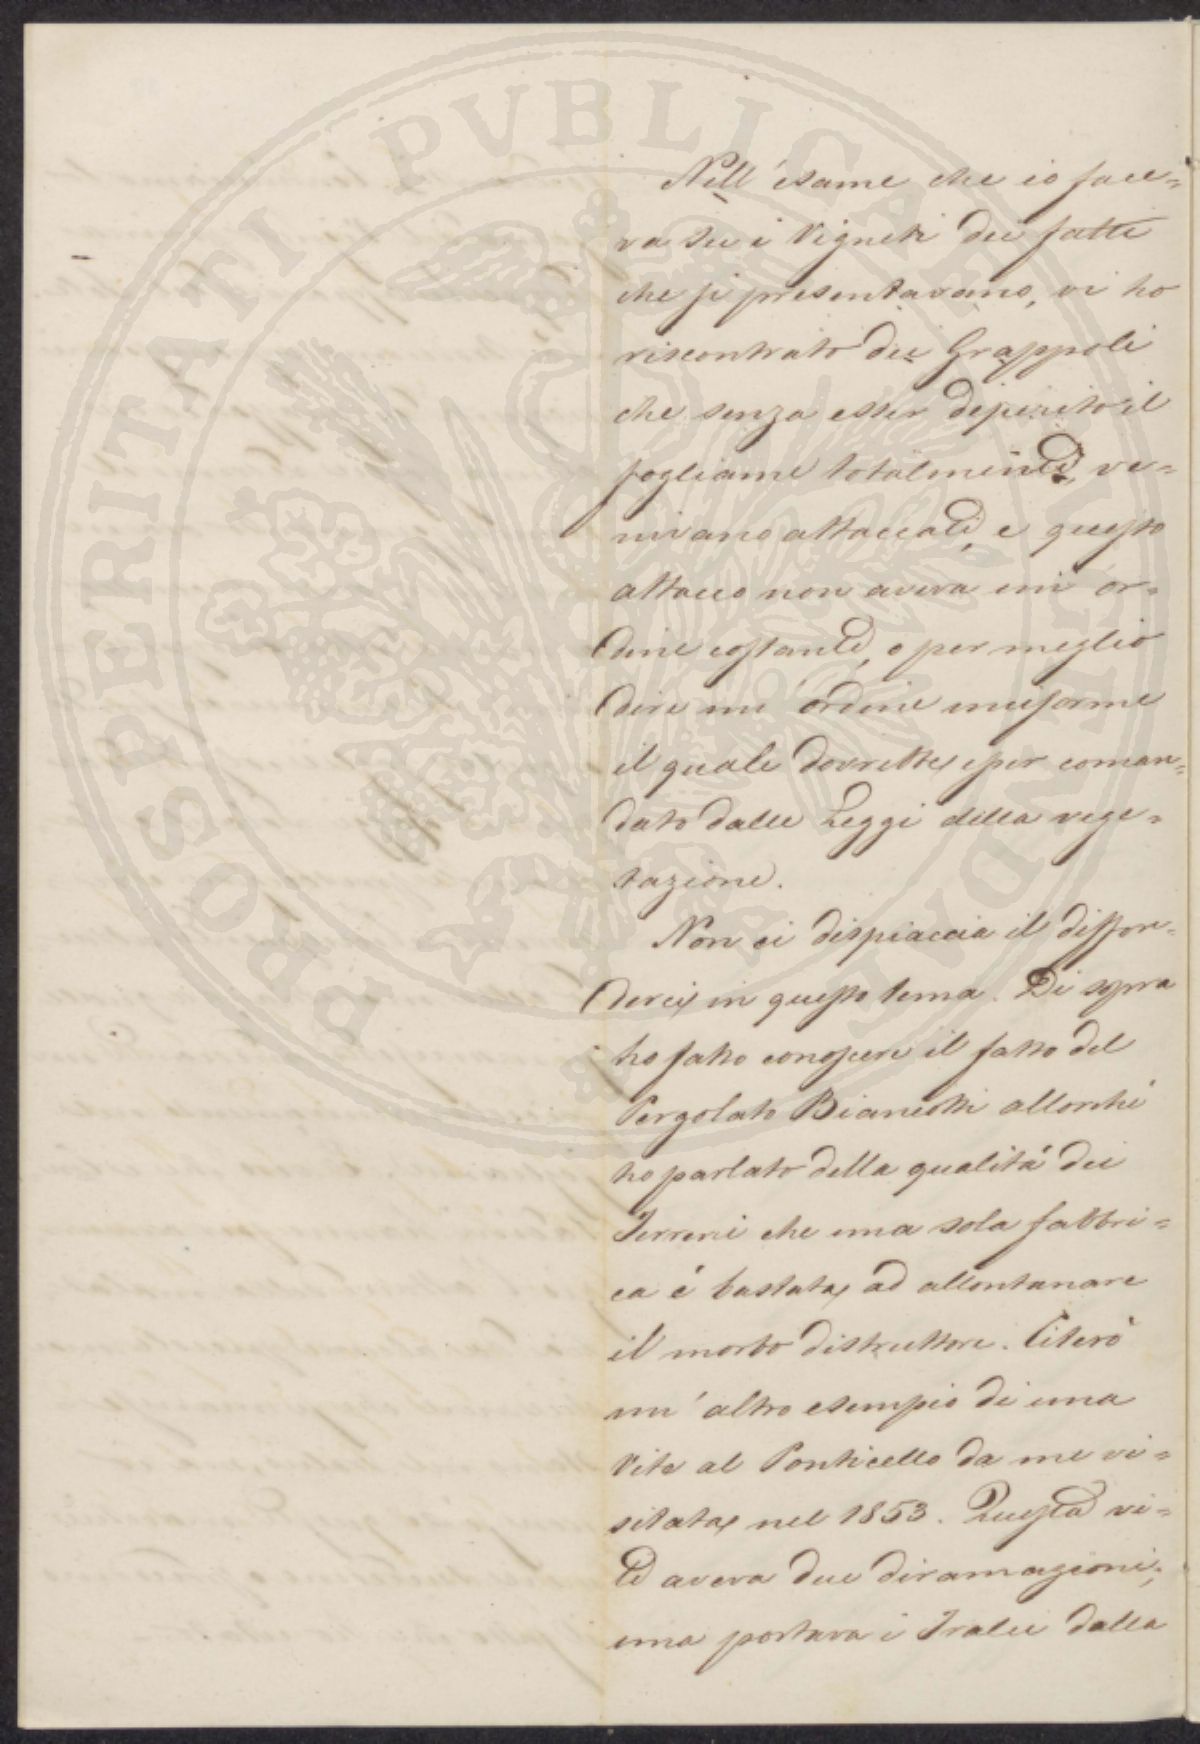 Nell'esame che io face=
va su i Vigneti dei fatti
che si presentavano, vi ho
riscontrato dei Grappoli
che senza esser deperito il
fogliame totalmente, ve=
nivano attaccati, e questo
attacco non aveva un or=
dine costante, o per meglio
dire un ordine uniforme
il quale dovrebbe esser coman=
dato dalle Leggi della vege=
tazione.
Non ci dispiaccia il diffon=
derci in questo tema. Di sopra
ho fatto conoscere il fatto del
Pergolato Bianciotti allorché
ho parlato della qualità dei
Terreni che una sola fabbri=
ca é bastata ad allontanare
il morbo distruttore. Citerò
un' altro esempio di una
Vite al Ponticello da me vi=
sitata nel 1853. Questa vi=
te aveva due diramazioni;
una portava i Tralci dalla
PROSPERITATI PVBLICAE AVGENDAE